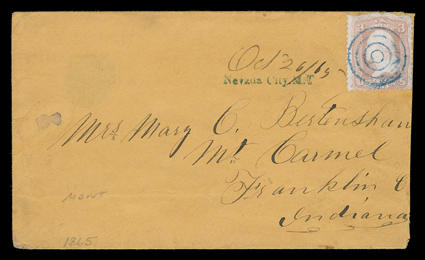 3 3
Oct 26/65
Nevada City, M.T
Mrs Mary C. Bertenshaw
Mt Carmel
Franklin C
Indiana
MONT
1865